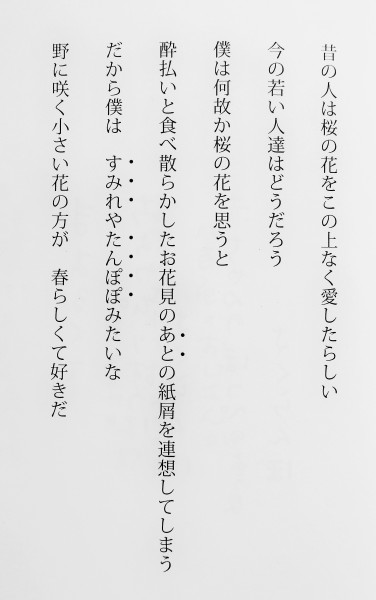 昔の人は桜の花をこの上なく愛したらしい
今の若い人達はどうだろう
僕は何故か桜の花を思うと
酔払いと食べ散らかしたお花見のあとの紙屑を連想してしまう
だから僕は　すみれやたんぽぽみたいな
野に咲く小さい花の方が　春らしくて好きだ